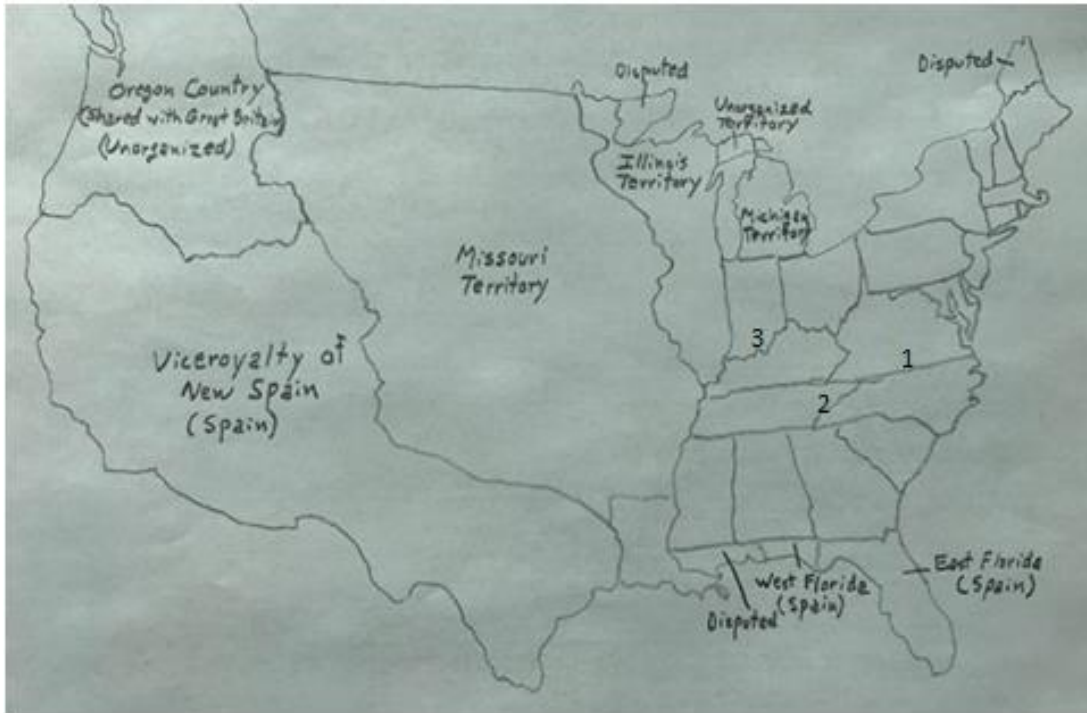 Oregon Country
(Shared with Great Britain)
(Unorganized)
Disputed
Unorganized
Territory
Illinois
Territory
Michigan
Territory
Disputed
Missouri
Territory
Viceroyalty of
New Spain
(Spain)
3
1
2
West Florida
(Spain)
Disputed
East Florida
(Spain)